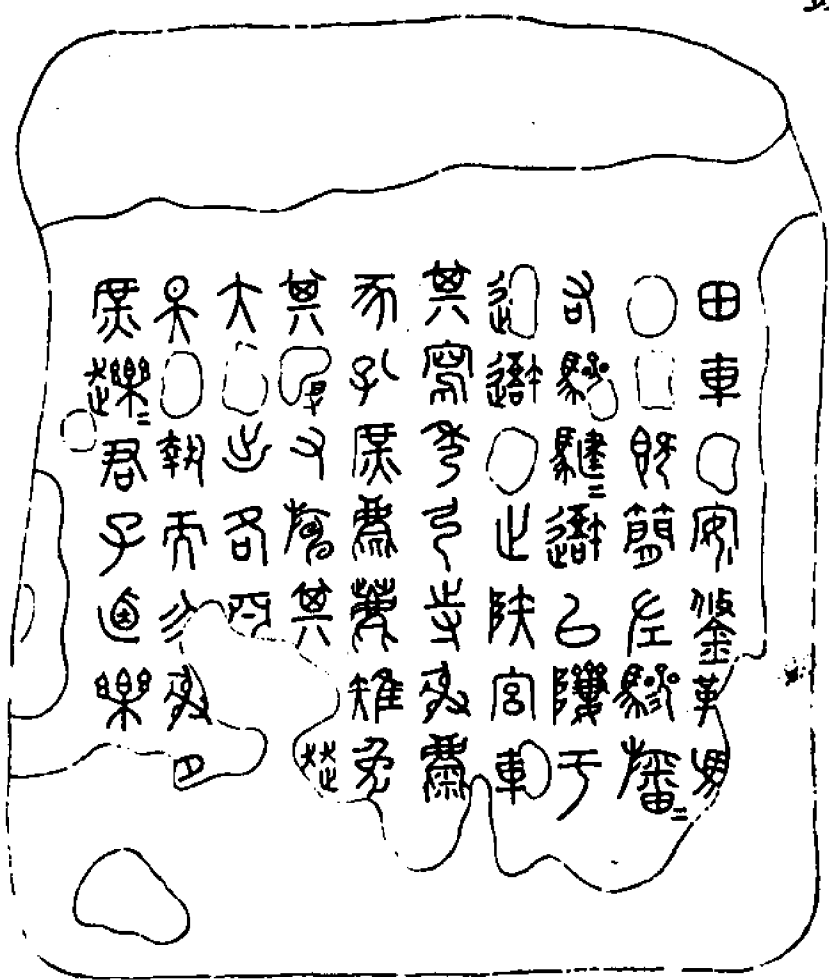 田車安鋚勒馬
既簡左驂旛＝
右驂騝＝䢒㠯隮于
邍䢒止陜宮車
其寫秀弓寺射麋
豕孔庶麀鹿雉兔
其又旃其
大出各亞
昊執而勿射
庶＝君子逌樂